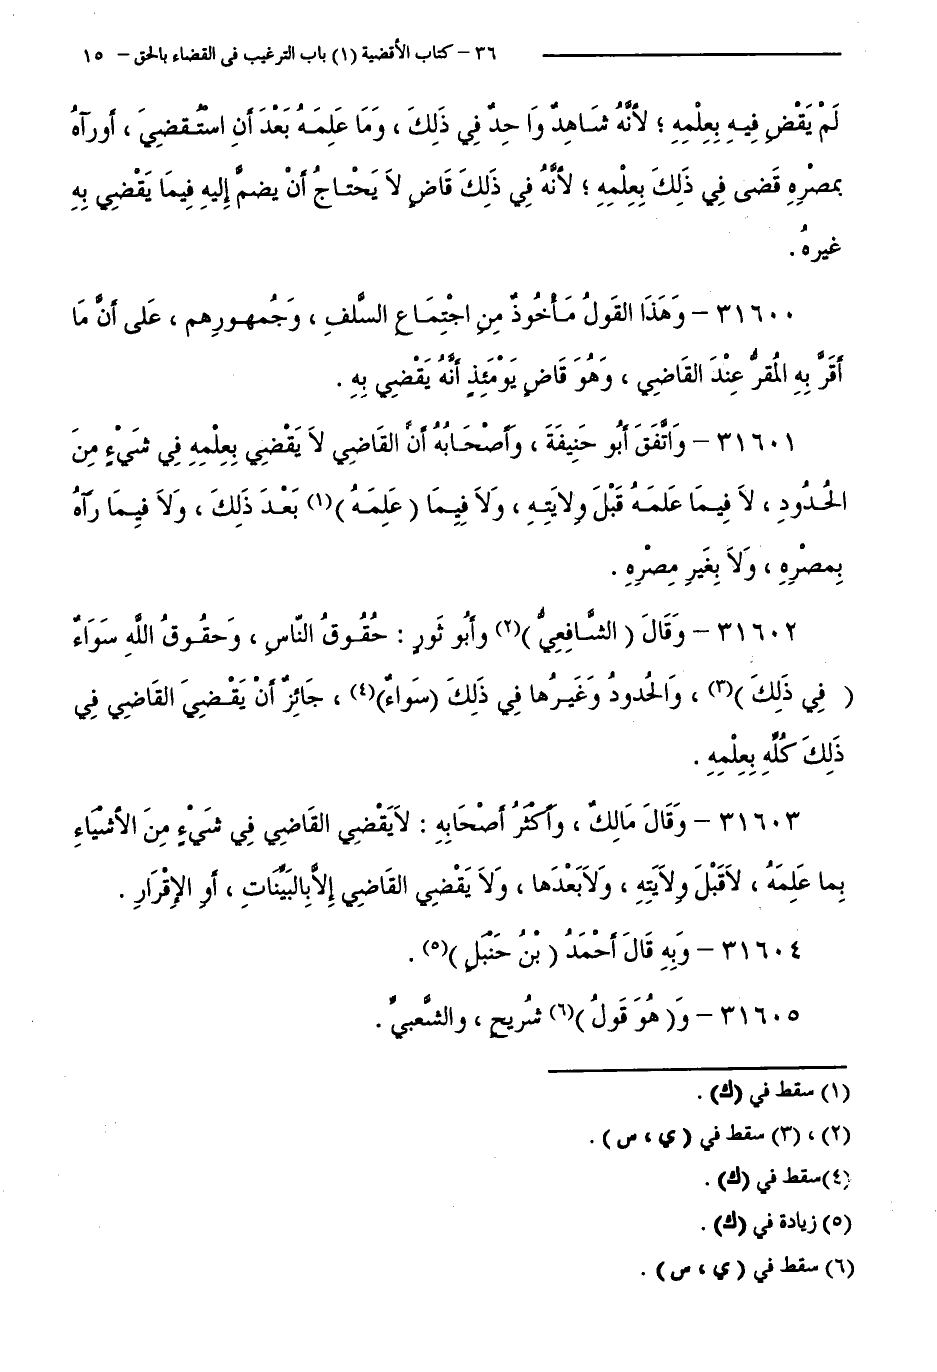 ٣٦ – كتاب الأقضية (١) باب الترغيب فى القضاء بالحق – ١٥
لَمْ يَقْضِ فِيهِ بِعِلْمِهِ ؛ لأنَّهُ شَاهِدٌ وَاحِدٌ فِي ذَلِكَ ، وَمَا عَلِمَهُ بَعْدَ أن اسْتُقضِيَ ، أورآهُ
بمصْرِهِ قَضى فِي ذَلِكَ بِعِلْمِهِ ؛ لأنَّهُ فِي ذَلِكَ قَاضٍ لاَ يَحْتاجُ أنْ يضمَّ إليهِ فِيمَا يَقْضِي بِهِ
غيرهُ .
٣١٦٠٠ – وَهَذَا القَولُ مَأْخُوذٌ مِنِ اجْتِمَاعِ السَّلفِ ، وَجُمهورِهم ، عَلى أنَّ مَا
أقَرَّ بِهِ المُقرُّ عِنْدَ القَاضِي ، وَهُوَ قَاضٍ يَوْمَئِذٍ أنَّهُ يَقْضِي بِهِ .
٣١٦٠١ – وَاتَّفَقَ أبُو حَنِيفَةَ ، وَأصْحَابُهُ أنَّ القَاضِي لاَ يَقْضِي بِعِلْمِهِ فِي شَيْءٍ مِنَ
الحُدُودِ ، لاَ فِيمَا عَلمَهُ قَبْلَ وِلايَتِهِ ، وَلاَ فِيمَا ( عَلِمَهُ )(١) بَعْدَ ذَلِكَ ، وَلاَ فِيمَا رَآهُ
بِمصْرِهِ ، وَلاَ بِغَيرِ مِصْرِهِ .
٣١٦٠٢ – وَقَالَ ( الشَّافِعِيُّ )(٢) وأبُو ثَورٍ : حُقُوقُ النَّاسِ ، وَحقُوقُ اللَّهِ سَوَاءٌ
( فِي ذَلِكَ )(٣) ، وَالحُدودُ وَغَيرُها فِي ذَلِكَ (سَواءٌ)(٤) ، جَائِزٌ أنْ يَقْضِيَ القَاضِي فِي
ذَلِكَ كُلِّهِ بِعِلْمِهِ .
٣١٦٠٣ – وَقَالَ مَالِكٌ ، وَأكْثَرُ أصْحَابِهِ : لاَيَقْضِي القَاضِي فِي شَيْءٍ مِنَ الأشْيَاءِ
بِما عَلِمَهُ ، لاَقَبْلَ وِلاَيَتِهِ ، وَلاَبَعْدَها ، وَلاَ يَقْضِي القَاضِي إلاَّبِالبَيِّنَاتِ ، أوِ الإقْرَارِ .
٣١٦٠٤ – وَبِهِ قَالَ أحْمَدُ ( بْنُ حَنْبَلٍ )(٥) .
٣١٦٠٥ – وَ( هُوَ قَولُ )(٦) شُريحٍ ، والشَّعبيِّ .
(١) سقط في (ك) .
(٢) ، (٣) سقط في ( ي ، س ) .
(٤) سقط في (ك) .
(٥) زيادة في (ك) .
(٦) سقط في ( ي ، س ) .